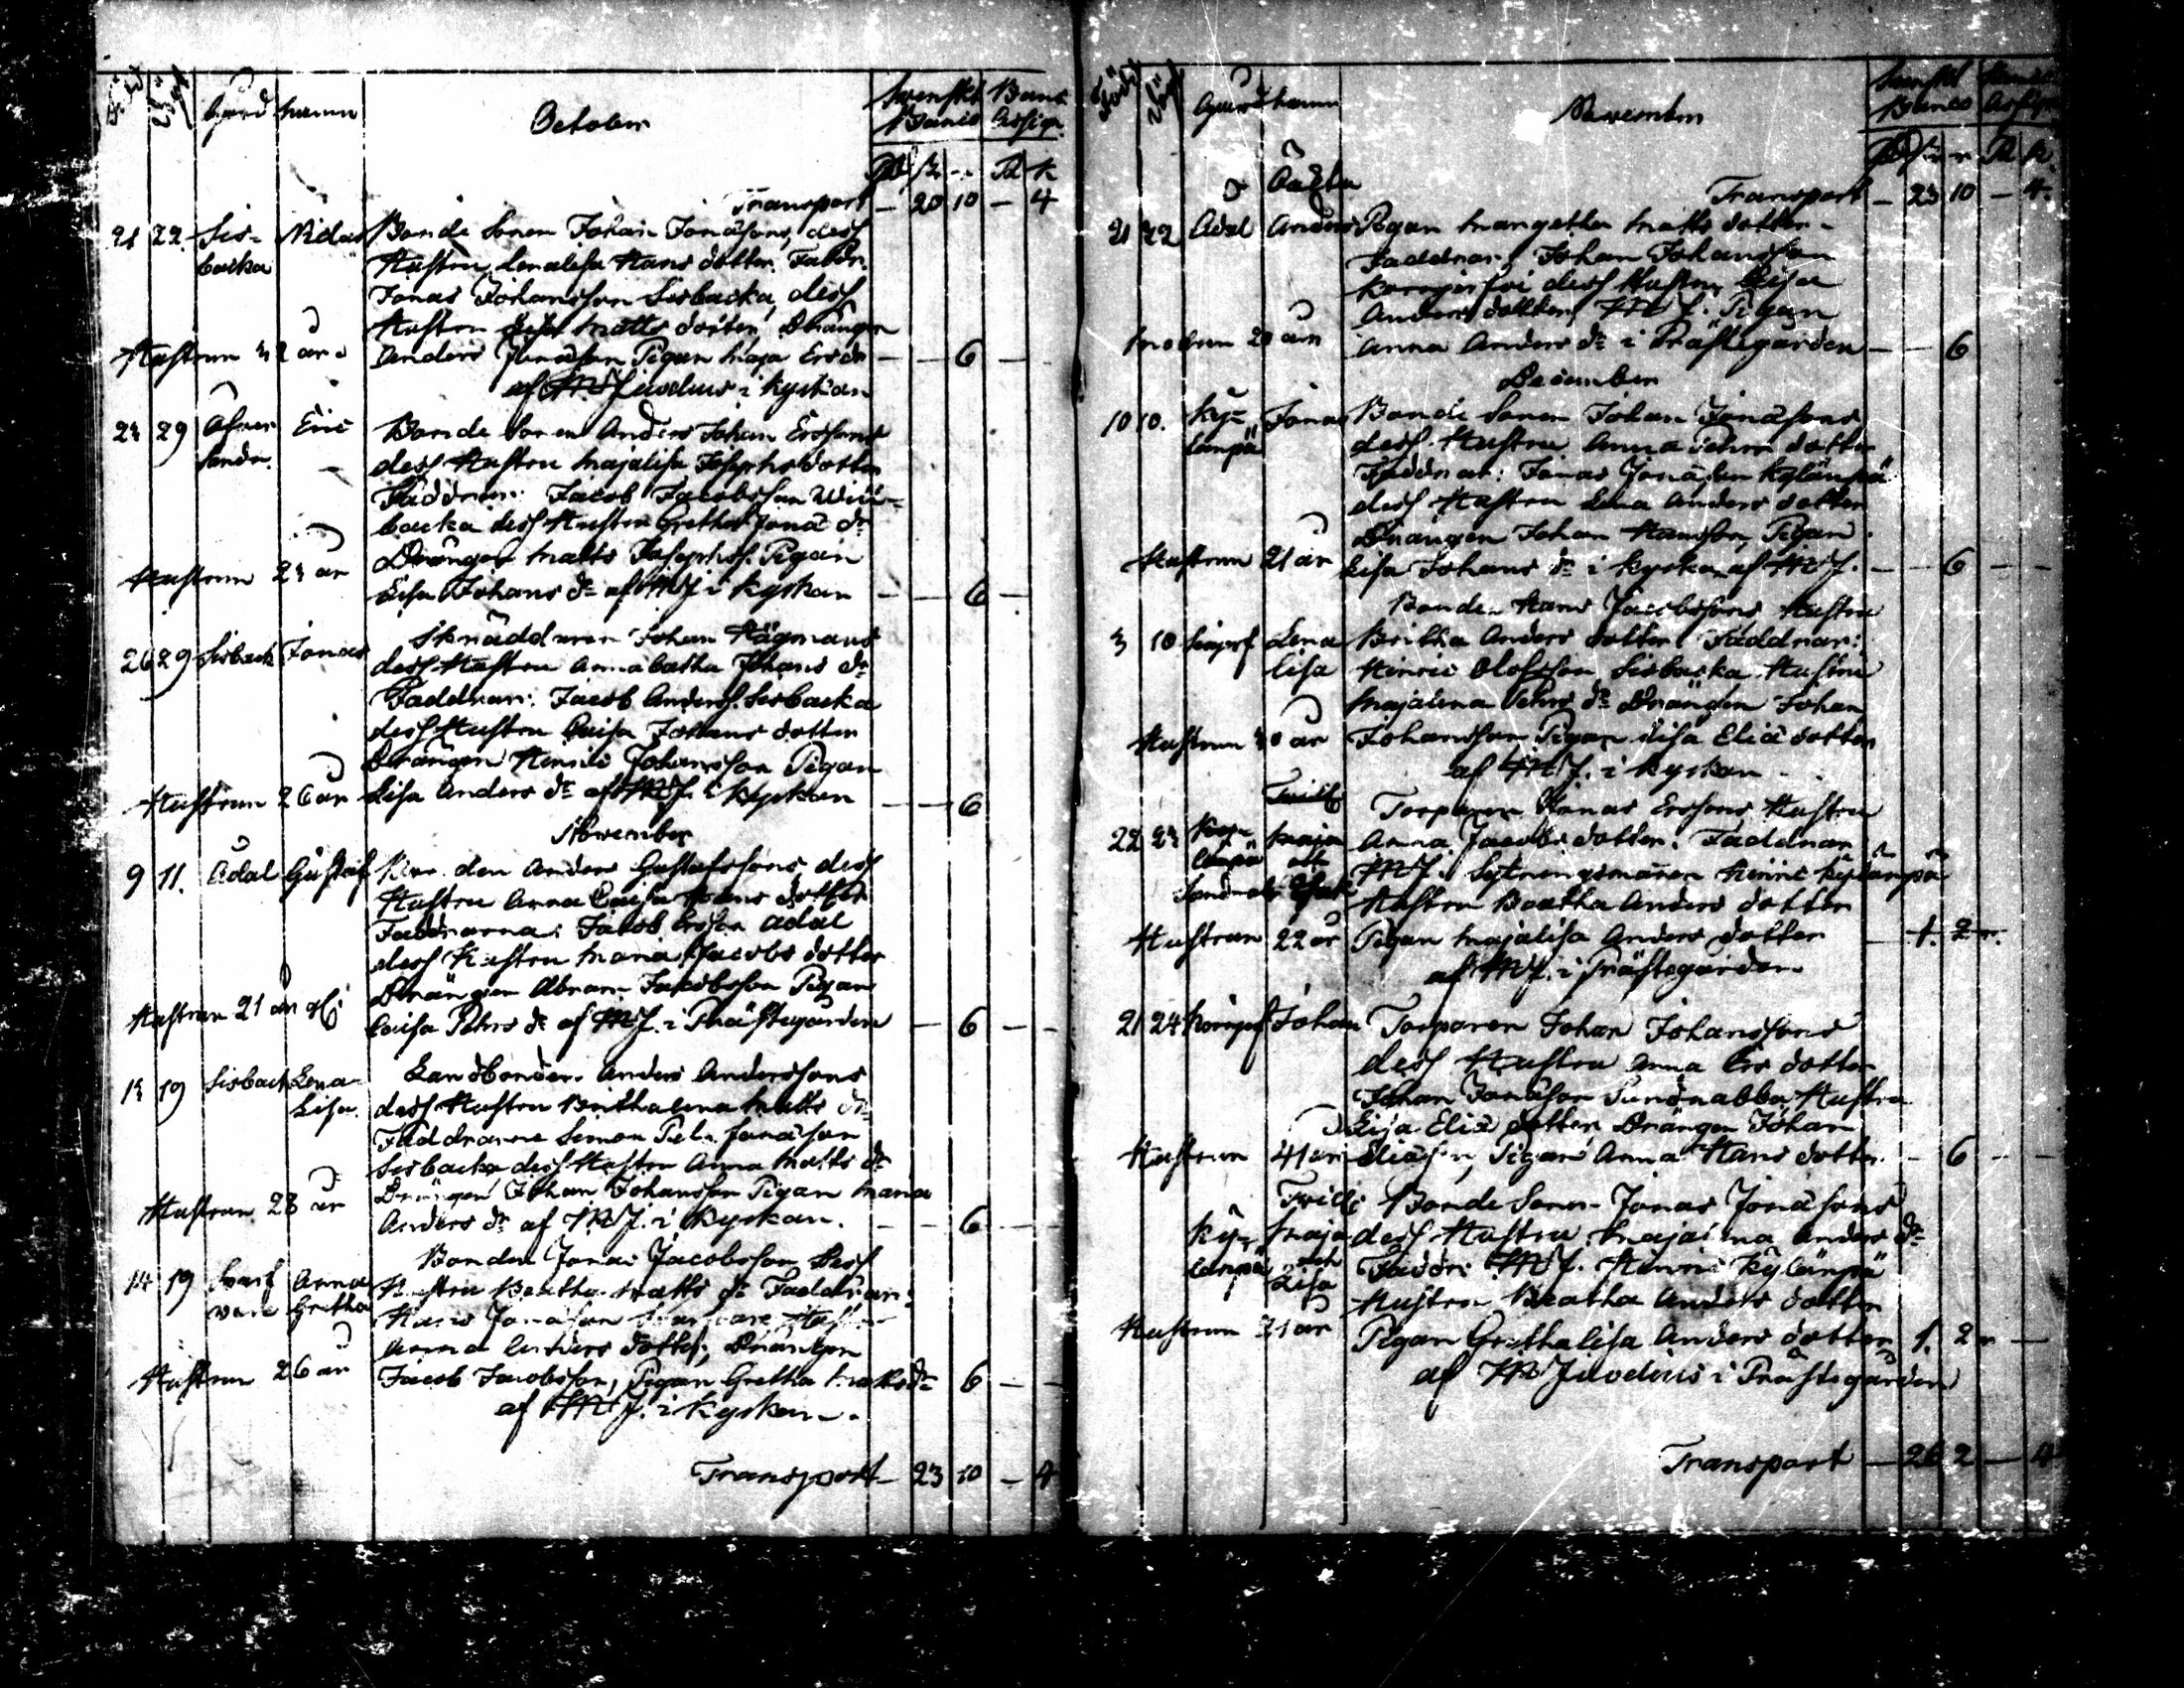 Gård namn October Svenskt Banco Banc Assign.
Rd ß r R k
Transport — 20 10 — 4
21 22 Sis- Nidas Bonde Sonen Johan Jonæsons, dess
backa Hustru Lenalisa Hans dotter. Faddr.
Jonas Johansson Sisbacka, dess
Hustru Lisa Matts dotter, Drängen
Hustrun 32 år Anders Jonæson Pigan Maja Ers dr — — 6 —
af MJuvelius i kyrkan
29 Eric Bonde Sonen Anders Johan Erssons
dess Hustru Majalisa Josephsdotter
Faddrar: Jacob Jacobsson
backa dess Hustru Gretha Jonæ dr
Drängen Matts Josephss. Pigan
Hustrun 23 år Lisa Johans dr af MJ i kyrkan — — 6 —
26 29 Sisback Jonas Skräddaren Johan Hägmans
dess Hustru Annabeatha Johans dr
Faddrar: Jacob Anderss. Sisbacka
dess Hustru Caisa Johans dotter
Drängen Henric Johansson Pigan
Hustrun 26 år Lisa Anders dr af MJ. i kyrkan — — 6
November
9 11. Adal Gustaf Anders Gustafssons, dess
Hustru Anna Caisa Hans dotter
Faddrarna: Jacob Ersson Adal
dess Hustru Maria Jacobs dotter
Drängen Abram Jacobsson Pigan
Hustrun 21 år Caisa Pehrs dr af MJ. i Prästegården — 6 — —
13 19 Sisback Lena Landbonden Anders Anderssons
Lisa. dess Hustru Brithalena Matts dr
Faddrarne Simon Jonæson
Sisbacka dess Hustru Anna Matts dr
Drängen Johan Johansson Pigan Maria
Hustrun 28 år Anders dr af MJ. i kyrkan. — — 6 —
Bonden Jonas Jacobsson dess
14 19 Anna Hustru Beatha Matts dr Faddrar:
Gretha Hans Jonæson
Anna Anders dotter, Drängen
Hustrun 26 år Jacob Jacobsson, Pigan Gretha Matts dr 6 — —
af MJ. i kyrkan.
Transport — 23 10 — 4
Gård namn November Svenskt Banco Assign
Rd ß r R k
Oäkta Transport — 23 10 — 4
21 22 Adal Anders Pigan Margetha Matts dotter
Faddrar: Johan Johansson
dess Hustru Caisa
Anders dotter, MJ. Pigan
Modren 20 år Anna Anders dr i Prästegården — — 6
December
10 10. Ky- Jonas Bonde Sonen Johan Jonæsons
länpä dess Hustru Anna Pehrs dotter
Faddrar: Jonas Jonæson Kylänpä
dess Hustru Lena Anders dotter
Drängen Johan Hansson, Pigan
Hustrun 21 år Lisa Johans dr i kyrkan af MJ. — — 6 — —
Bonden Hans Jacobssons Hustru
3 10 Lena Britha Anders dotter Faddrar:
lisa Henric Olofsson Sisbacka Hustru
Majalena Pehrs dr Drängen Johan
Hustrun 40 år Johansson Pigan Lisa Eliæ dotter
af MJ. i kyrkan
Torparen Jonas Erssons Hustru
22 23 Maja Anna Jacobs dotter. Faddrar
länpä och MJ. Sytningsmannen Henric Kylänpä
Hustru Beatha Anders dotter
Hustrun 22 år Pigan Majalisa Anders dotter — 1. 2
af MJ. i Prästegården
21 24 Johan Torparen Johan Johanssons
dess Hustru Anna Ers dotter
Johan Jonæson Sundnabba Hustru
Lisa Eliæ dotter, Drängen Johan
Hustrun 41 år Eliæson, Pigan Anna Hans dotter — 6 — —
Bonde Sonen Jonas Jonæsons
Ky- Maja dess Hustru Majalena Anders dr
länpä och Faddr: MJ. Henric Kylänpä
Lisa Hustru Beatha Anders dotter
Hustrun 21 år Pigan Grethalisa Anders dotter 1. 2 —
af MJuvelius i Prästegården
Transport — 26 2 — 4